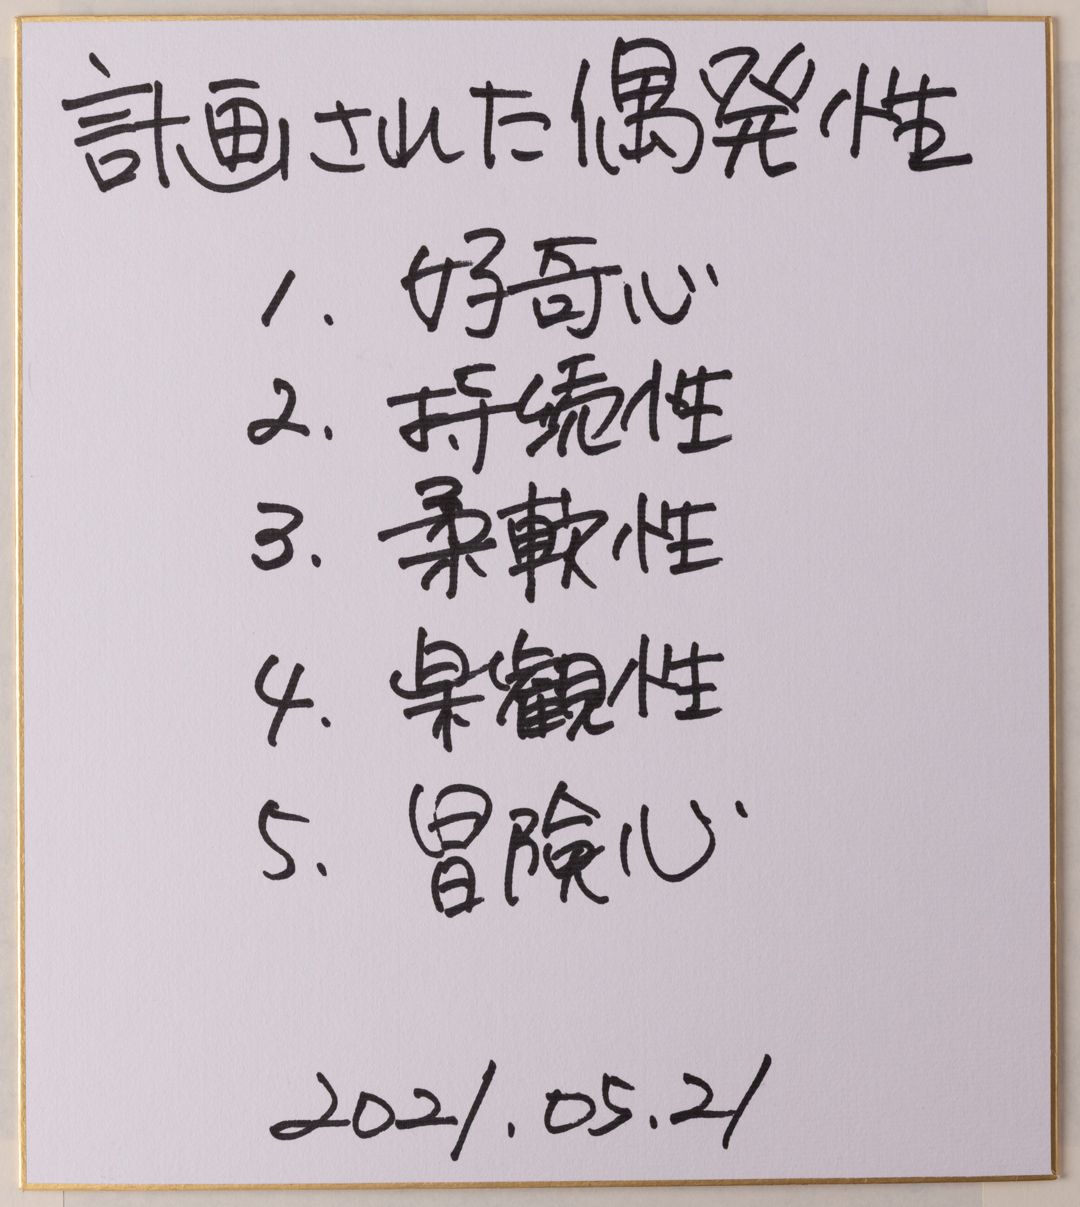 計画された偶発性
1. 好奇心
2. 持続性
3. 柔軟性
4. 楽観性
5. 冒険心
2021.05.21